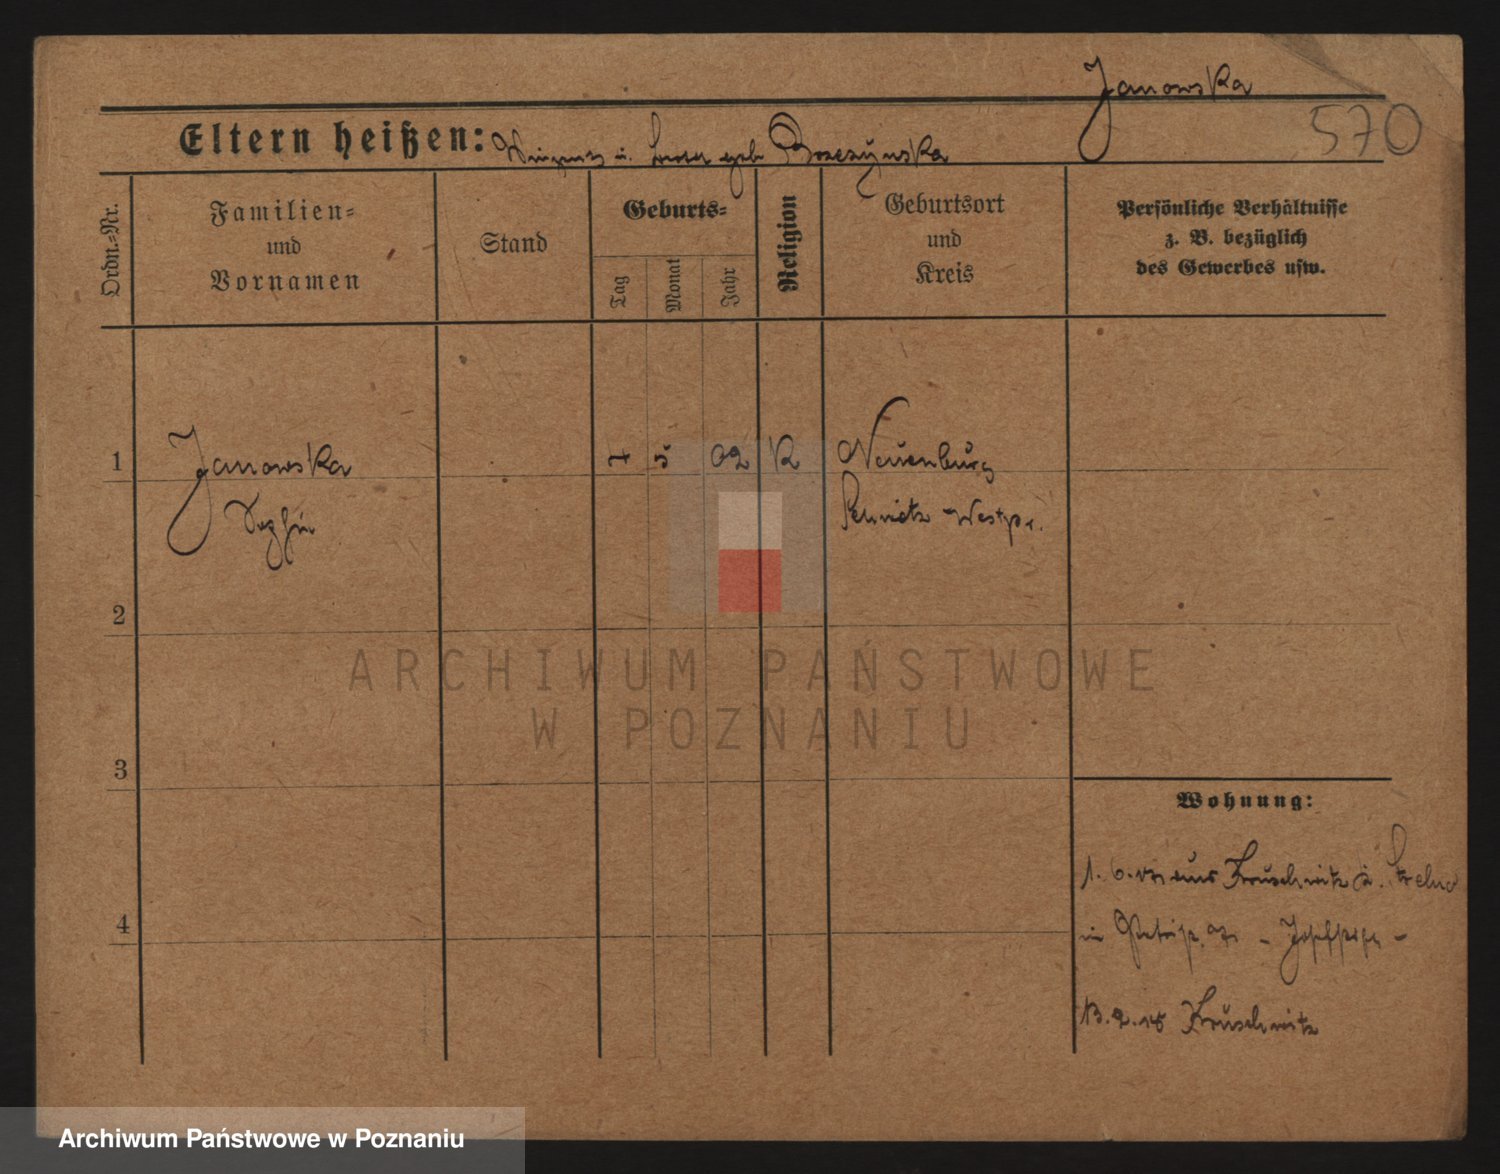 Janowska
570
Eltern heißen: u. geb.
Ordn.=Nr.
Familien=
und
Vornamen
Stand
Geburts=
Tag
Monat
Jahr
Religion
Geburtsort
und
Kreis
Persönliche Verhältnisse
z. B. bezüglich
des Gewerbes usw.
1
Janowska
7 5 02 K
Neuenburg
Westpr.
2
3
4
Wohnung:
1. 6. aus Kruschwitz Strelno
in
13. 2. 18 Kruschwitz
ARCHIWUM PAŃSTWOWE
W POZNANIU
Archiwum Państwowe w Poznaniu